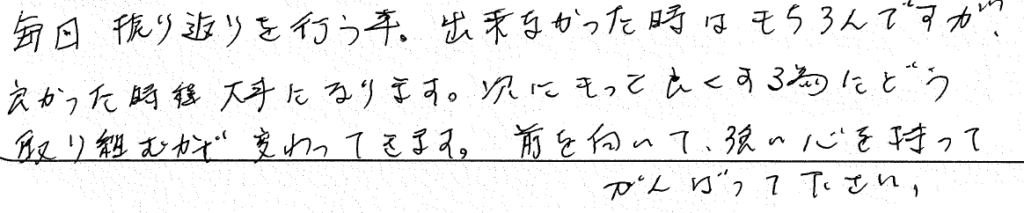 毎日 振り返りを行う事。出来なかった時はもちろんですが、
良かった時程 大事になります。次にもっと良くする為にどう
取り組むかで 変わってきます。前を向いて、強い心を持って
がんばって下さい,